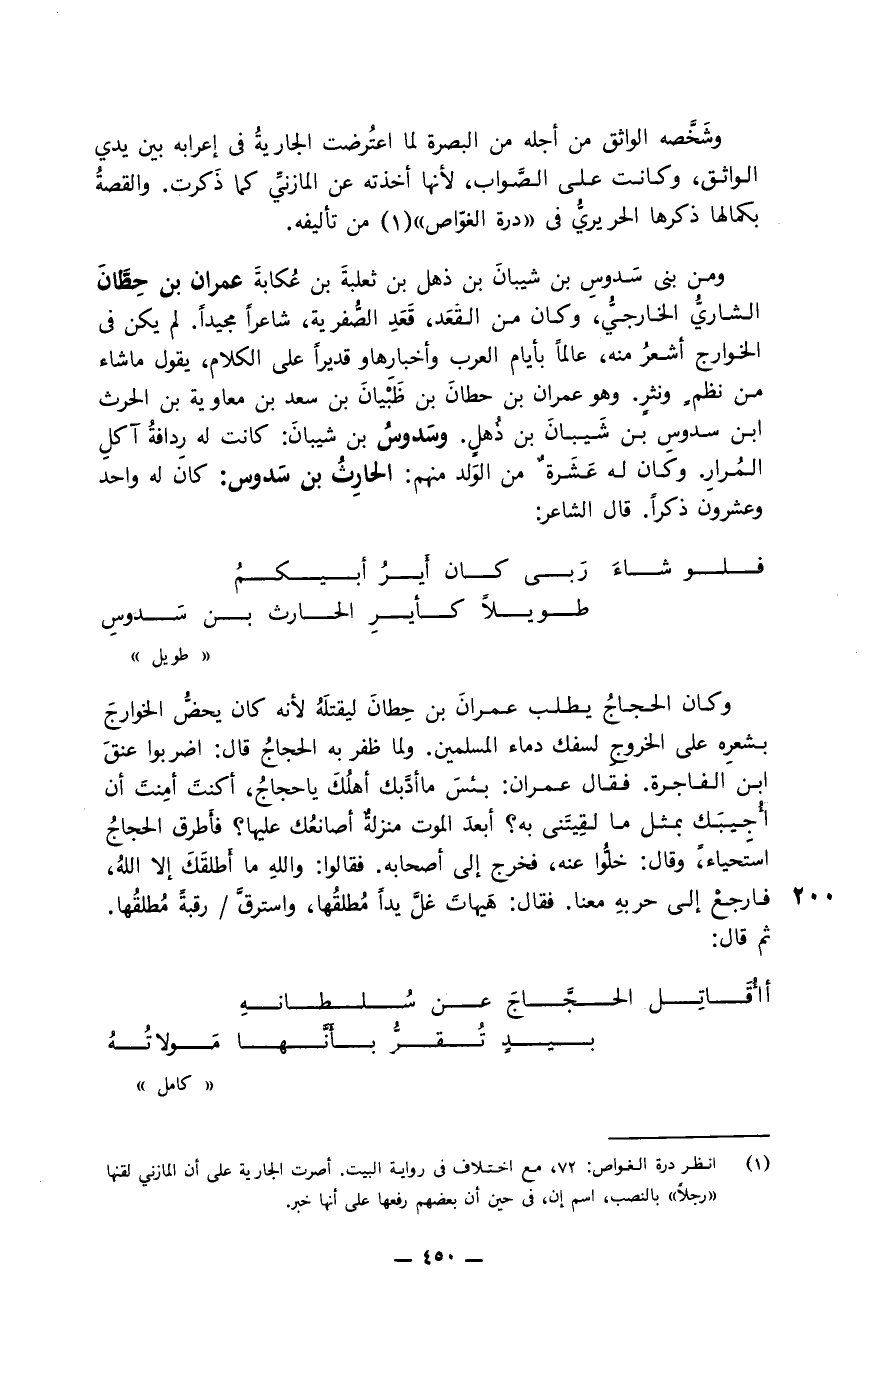 وشَخَّصه الواثق من أجله من البصرة لما اعتُرضت الجاريةُ فى إعرابه بين يدي
الواثق، وكانت على الصَّواب، لأنها أخذته عن المازنيِّ كما ذَكرت. والقصةُ
بكمالها ذكرها الحريريُّ فى «درة الغوّاص»(١) من تأليفه.
ومن بنى سَدوسِ بن شيبانَ بن ذهل بن ثعلبةَ بن عُكابةَ عمران بن حِطَّانَ
الشاريُّ الخارجيُّ، وكان من القَعَد، قَعَدِ الصُّفرية، شاعراً مجيداً. لم يكن فى
الخوارج أشعرُ منه، عالماً بأيام العرب وأخبارهاو قديراً على الكلام، يقول ماشاء
من نظمٍ ونثرٍ. وهو عمران بن حطانَ بن ظَبْيانَ بن سعد بن معاوية بن الحرث
ابن سدوسِ بن شَيبانَ بن ذُهلٍ. وسَدوسُ بن شيبانَ: كانت له رِدافةُ آكلِ
المُرارِ. وكان له عَشَرةٌ من الوَلد منهم: الحارِثُ بن سَدوس: كانَ له واحد
وعشرون ذكراً. قال الشاعر:
فلو شاءَ رَبى كان أَيرُ أبيكمُ
طويلاً كأيرِ الحارث بن سَدوسِ
« طويل »
وكان الحجاجُ يطلب عمرانَ بن حِطانَ ليقتلَهُ لأنه كان يحضُّ الخوارجَ
بشعرِه على الخروجِ لسفك دماء المسلمين. ولما ظفر به الحجاجُ قال: اضربوا عنقَ
ابن الفاجرة. فقال عمران: بئسَ ماأدَّبك أهلُكَ ياحجاجُ، أكنتَ أمِنتَ أن
أُجيبَك بمثل ما لقِيتَنى به؟ أبعدَ الموت منزلةٌ أصانعُك عليها؟ فأطرق الحجاجُ
استحياءً، وقال: خلُّوا عنه، فخرج إلى أصحابه. فقالوا: واللهِ ما أَطلقَكَ إلا اللهُ،
فارجعْ إلى حربهِ معنا. فقال: هَيهاتَ غلَّ يداً مُطلقُها، واسترقَّ / رقبةً مُطلقُها. ٢٠٠
ثم قال:
أأُقَاتِل الحجَّاجَ عن سُلطانهِ
بيدٍ تُقرُّ بأنَّها مَولاتُهُ
« كامل »
(١) انظر درة الغواص: ٧٢، مع اختلاف فى رواية البيت. أصرت الجارية على أن المازني لقنها
«رجلاً» بالنصب، اسم إن، فى حين أن بعضهم رفعها على أنها خبر.
— ٤٥٠ —